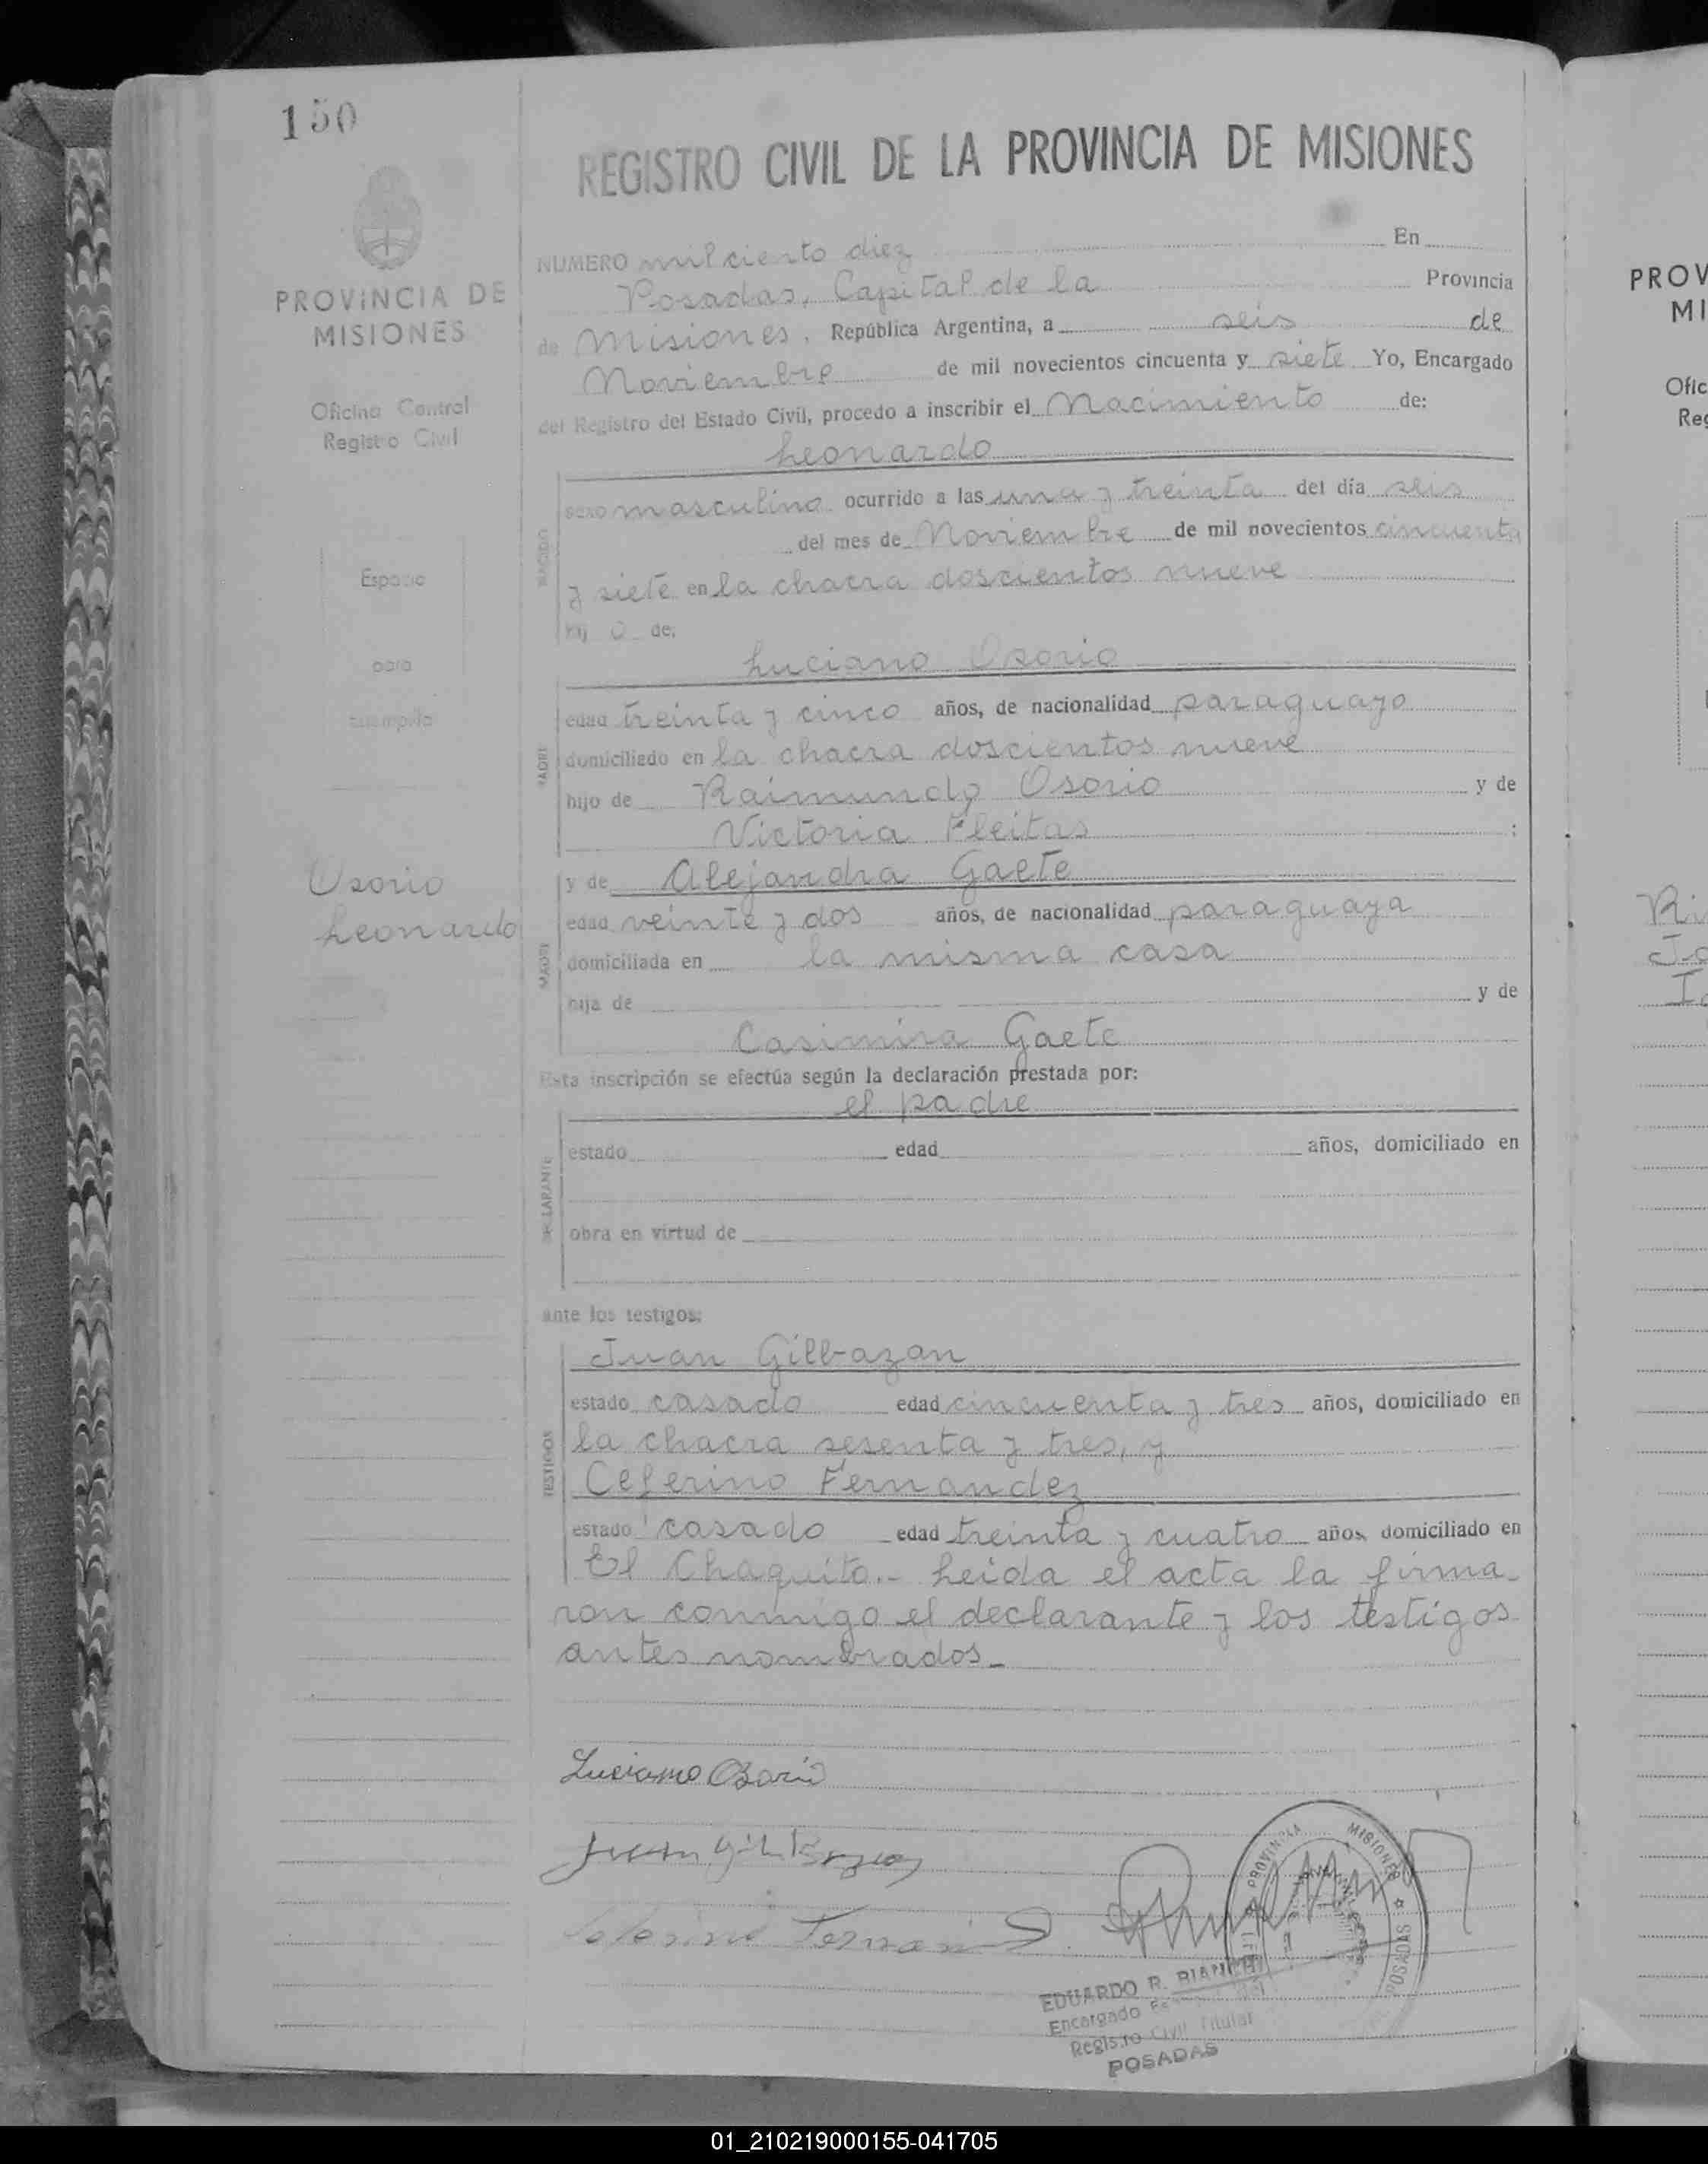 150
REGISTRO CIVIL DE LA PROVINCIA DE MISIONES
PROVINCIA DE
MISIONES
Oficina Central
Registro Civil
Espacio
para
Estampilla
Osorio
Leonardo
NUMERO mil ciento diez En
Posadas, Capital de la Provincia
de Misiones, República Argentina, a seis de
Noviembre de mil novecientos cincuenta y siete Yo, Encargado
del Registro del Estado Civil, procedo a inscribir el Nacimiento de:
Leonardo
NACIDO
sexo masculino ocurrido a las una y treinta del día seis
del mes de Noviembre de mil novecientos cincuenta
y siete en la chacra doscientos nueve
hijo de:
Luciano Osorio
PADRE
edad treinta y cinco años, de nacionalidad paraguayo
domiciliado en la chacra doscientos nueve
hijo de Raimundo Osorio y de
Victoria Fleitas :
y de Alejandra Gaete
MADRE
edad veinte y dos años, de nacionalidad paraguaya
domiciliada en la misma casa
hija de y de
Casimira Gaete
Esta inscripción se efectúa según la declaración prestada por:
el padre
DECLARANTE
estado edad años, domiciliado en
obra en virtud de
ante los testigos:
TESTIGOS
Juan Gilbazan
estado casado edad cincuenta y tres años, domiciliado en
la chacra sesenta y tres, y
Ceferino Fernandez
estado casado edad treinta y cuatro años, domiciliado en
El Chaquito.- Leida el acta la firma-
ron conmigo el declarante y los testigos
antes nombrados.-
Luciano Osorio
PROVINCIA MISIONES
POSADAS
EDUARDO R. BIANCHI
Encargado
Registro Civil Titular
POSADAS
PROV
MI
Ofic
Reg
Ri
Jo
01_210219000155-041705